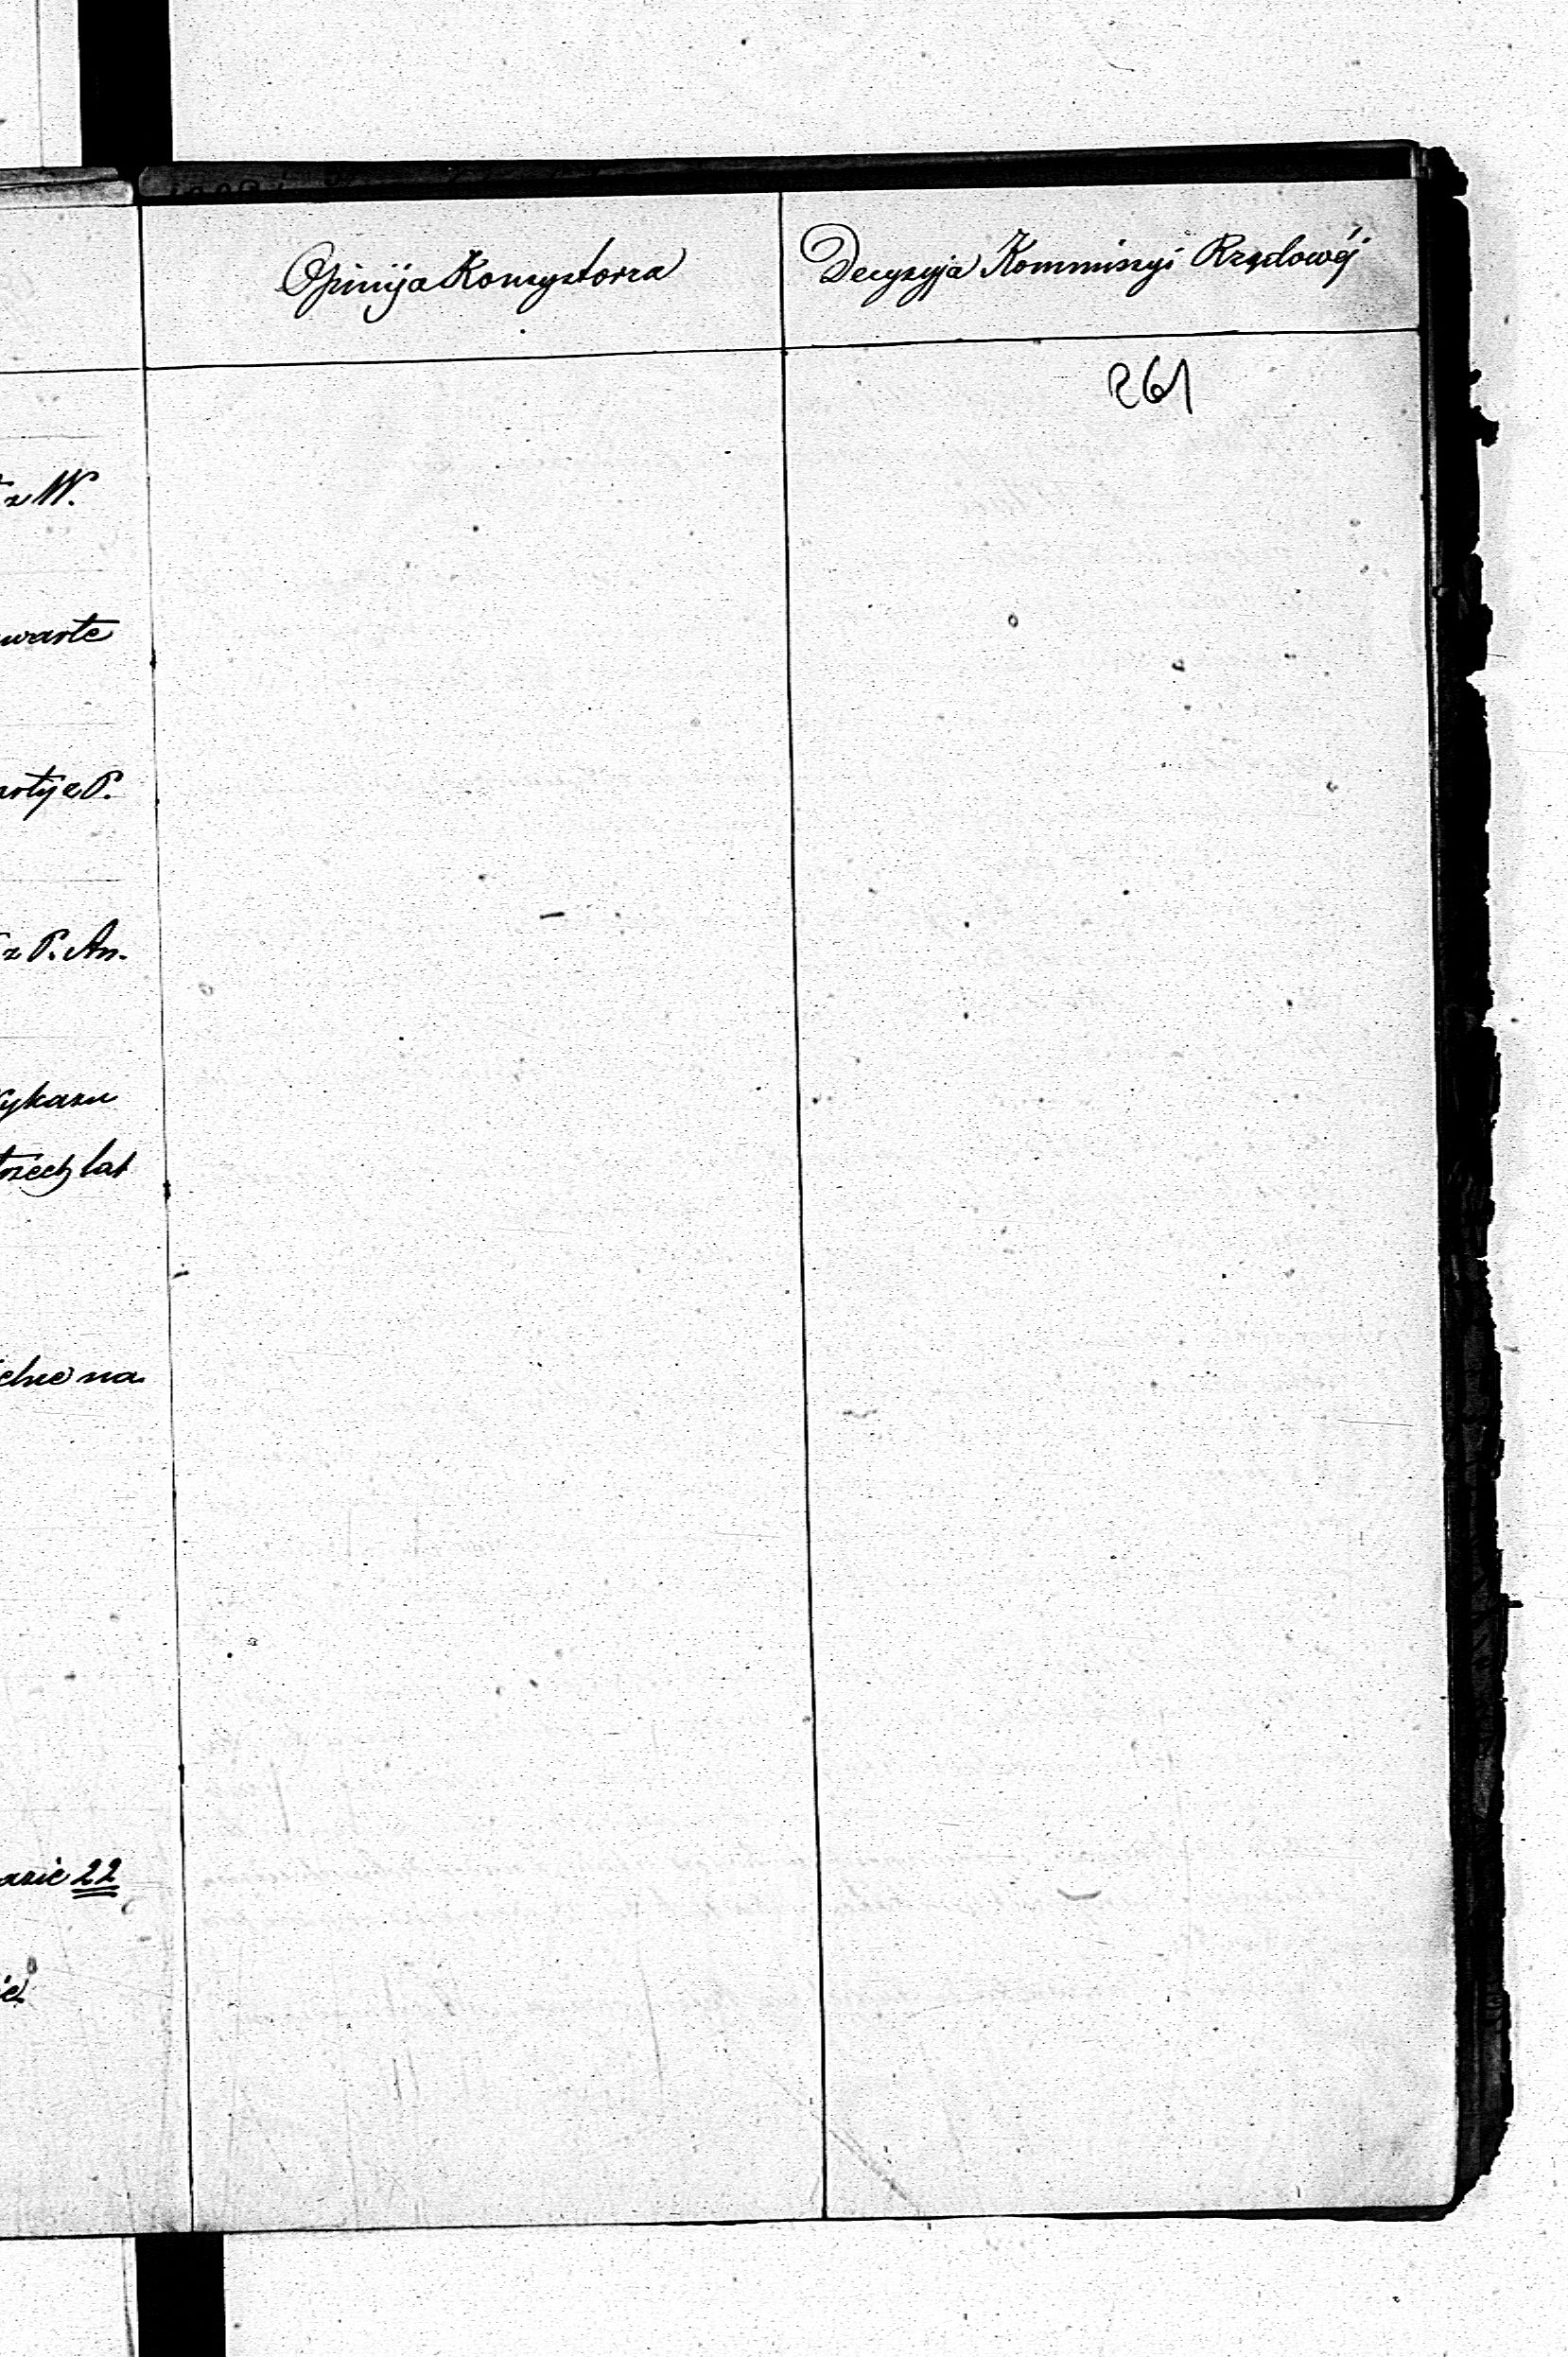 Opinija Konsystorza
Decyzyja Kommissyi Rządowéj
261
z W.
warte
z P.
z P. An.
ykazu
trzech lat
na
22